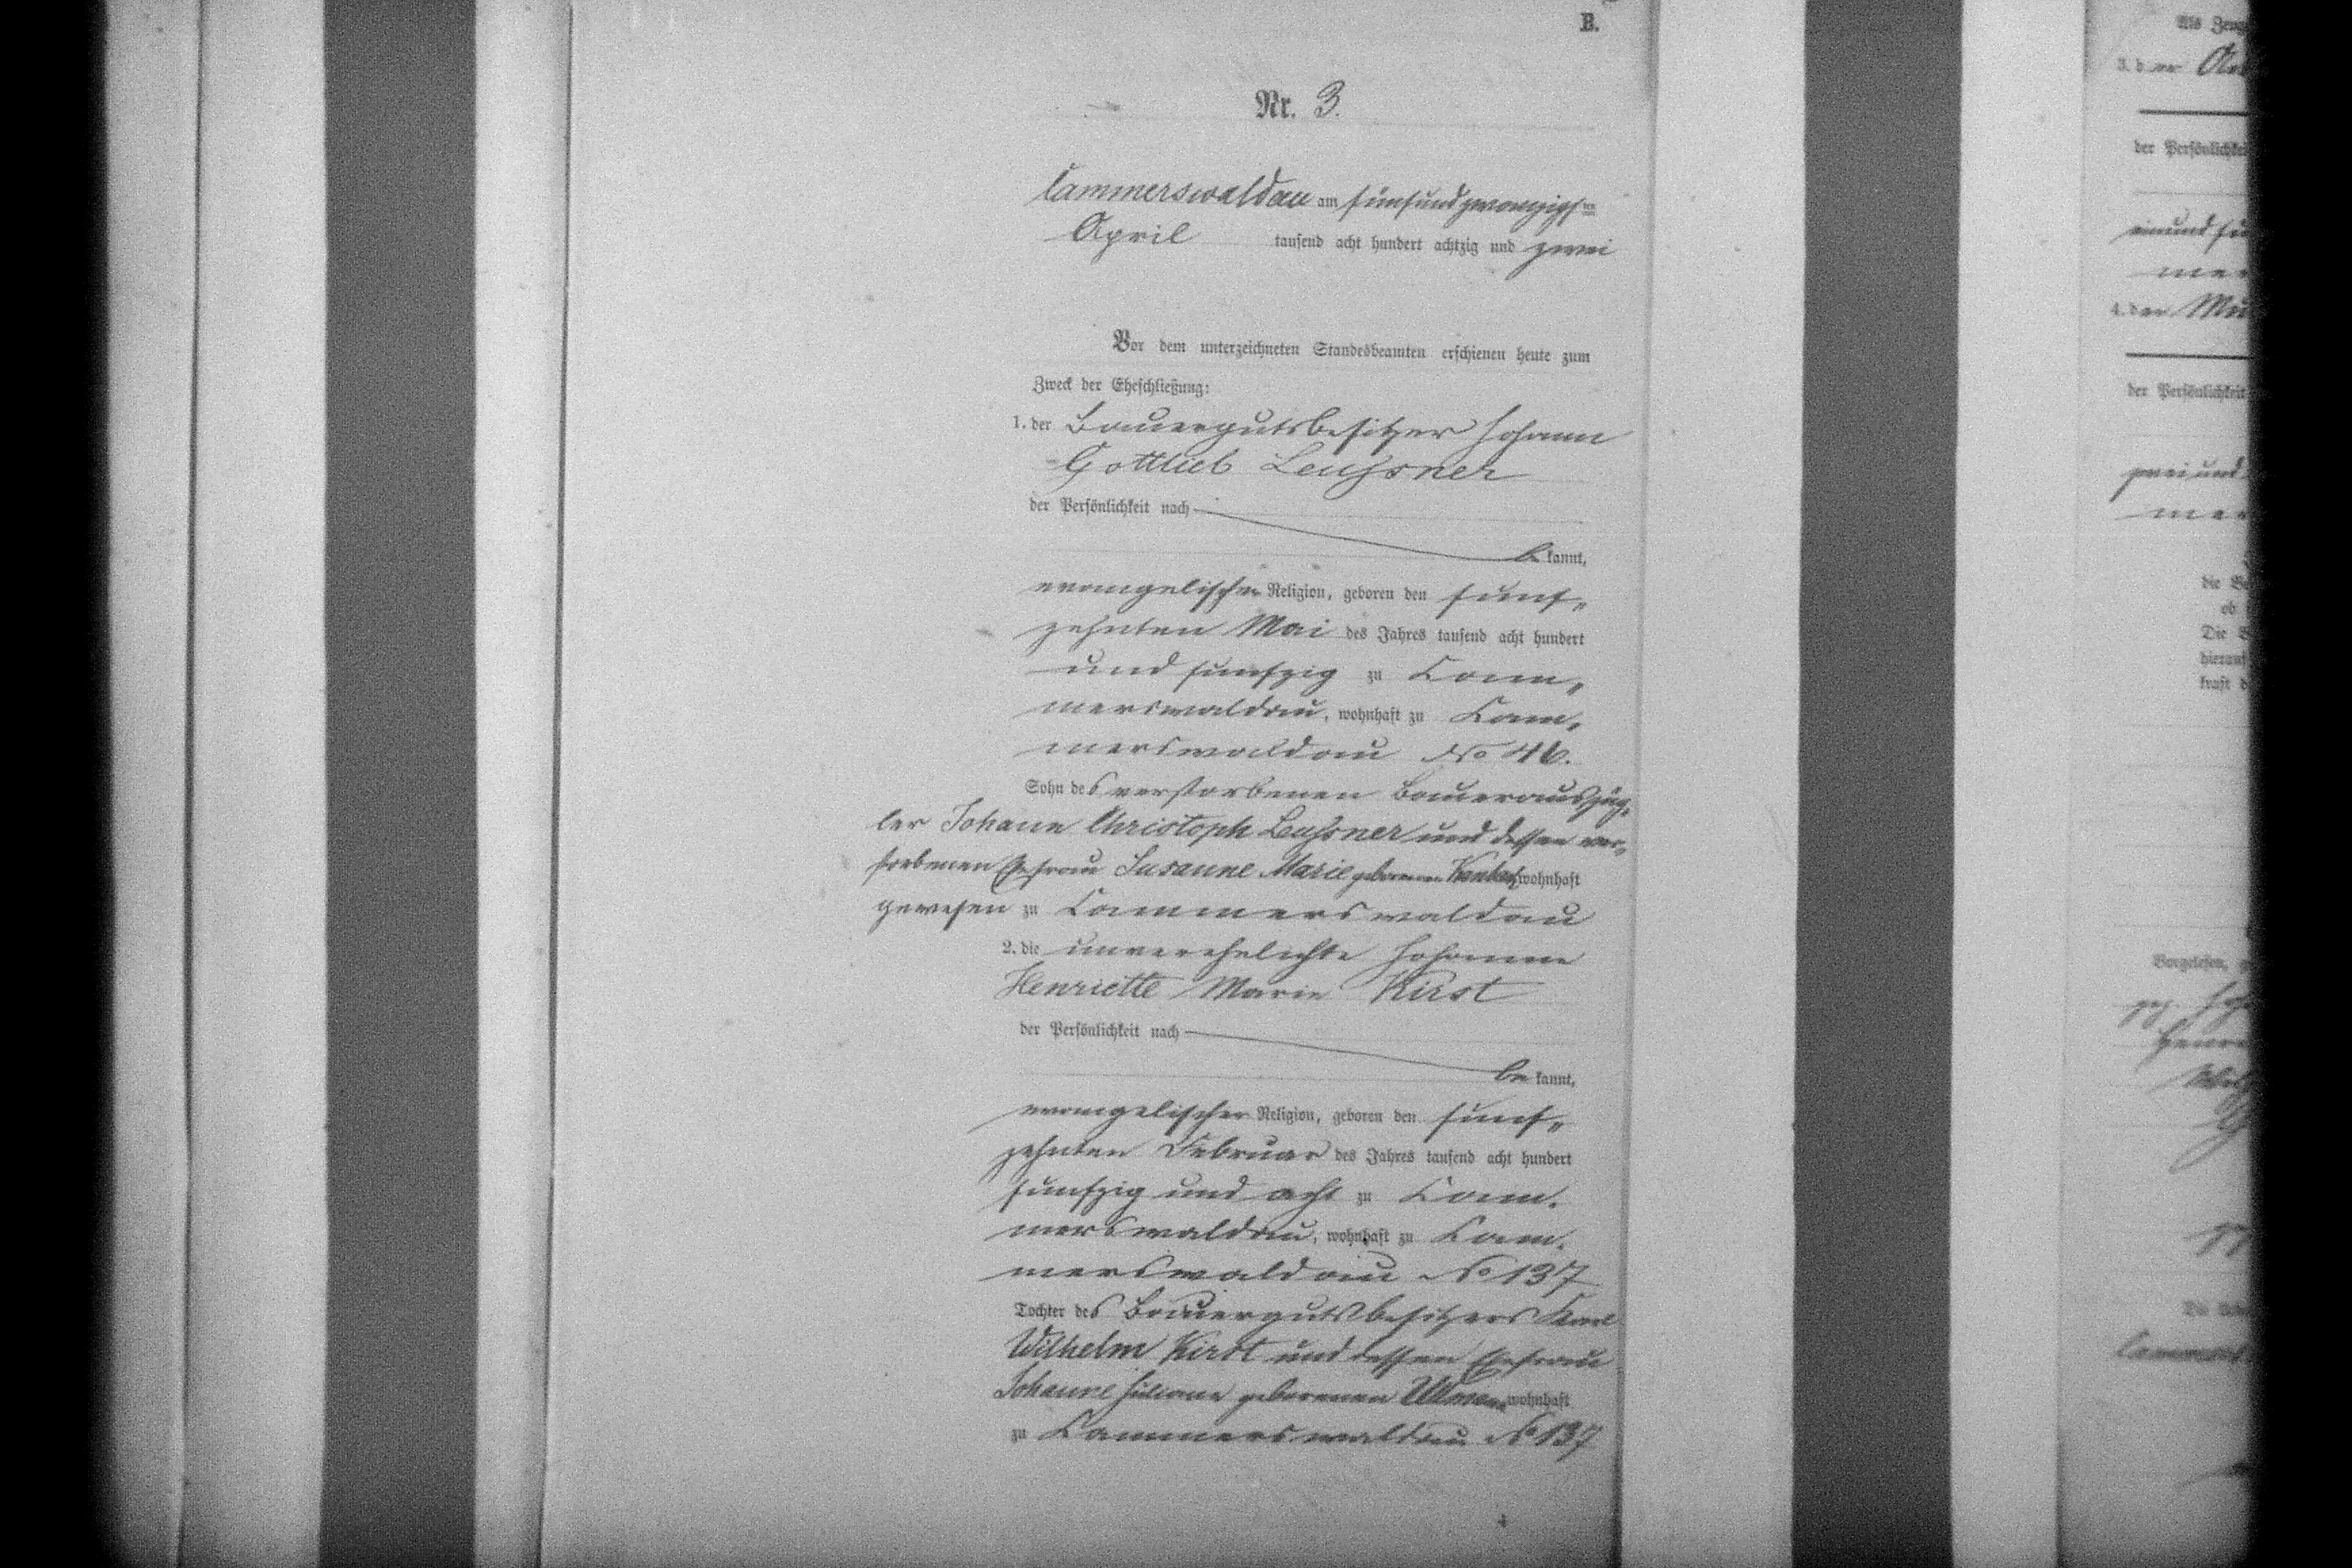 B.
Nr. 3.
Cammerswaldau am fünfundzwanzigsten
April tausend acht hundert achtzig und zwei
Vor dem unterzeichneten Standesbeamten erschienen heute zum
Zweck der Eheschließung:
1. der Bauergutsbesitzer Johann
Gottlieb Leussner
der Persönlichkeit nach
be kannt,
evangelischer Religion, geboren den fünf„
zehnten Mai des Jahres tausend acht hundert
und fünfzig zu Cam„
merswaldau, wohnhaft zu Cam„
merswaldau No 46.
Sohn des verstorbenen Bauerauszüg„
ler Johann Christoph Leussner und dessen ver„
storbenen Ehefrau Susanne Marie geborenen wohnhaft
gewesen zu Cammerswaldau
2. die unverehelichte Johanne
Henriette Marie Kirst
der Persönlichkeit nach
be kannt,
evangelischer Religion, geboren den fünf„
zehnten Februar des Jahres tausend acht hundert
fünfzig und acht zu Cam„
merswaldau, wohnhaft zu Cam„
merswaldau No 137
Tochter des Bauergutsbesitzers Karl
Wilhelm Kirst und dessen Ehefrau
Johanne Juliane geborenen wohnhaft
zu Cammerswaldau No 137
4
Als
3. der
der
einund
4. der
der
zweiund
die
ob
Die
hierauf
kraft
Vorgelesen,
gez.